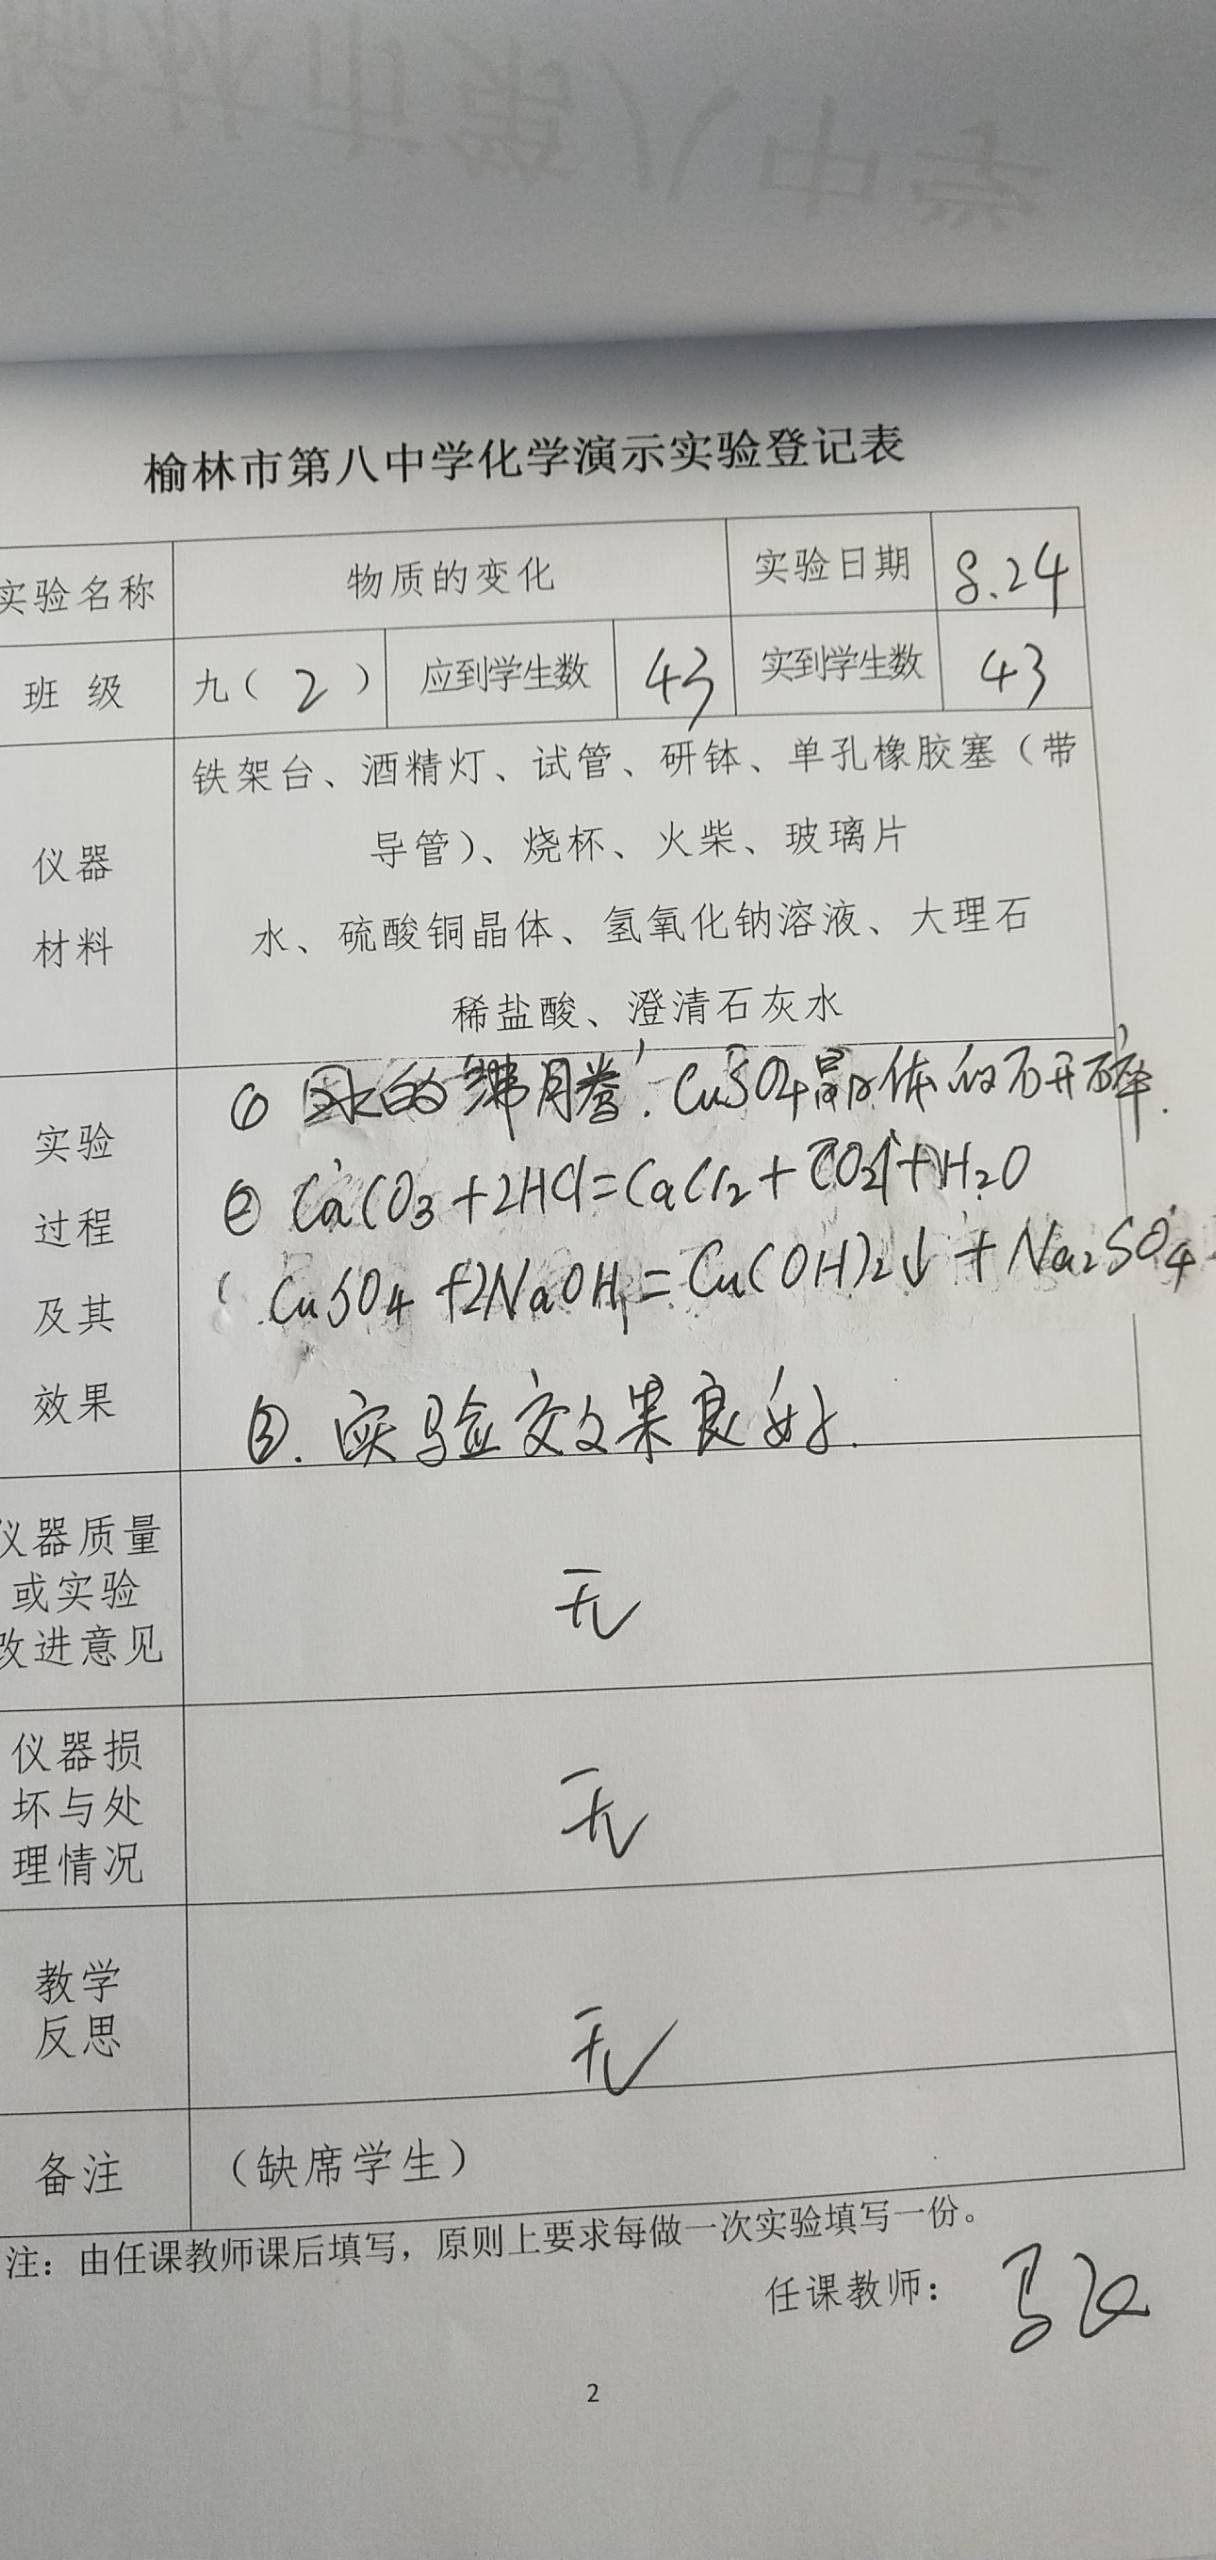 榆林市第八中学化学演示实验登记表
实验名称 物质的变化 实验日期 8.24
班 级 九（2） 应到学生数 43 实到学生数 43
仪器
材料
铁架台、酒精灯、试管、研钵、单孔橡胶塞（带
导管）、烧杯、火柴、玻璃片
水、硫酸铜晶体、氢氧化钠溶液、大理石
稀盐酸、澄清石灰水
实验
过程
及其
效果
① 水的沸腾. CuSO4晶体的研碎.
② CaCO3+2HCl=CaCl2+CO2↑+H2O
CuSO4+2NaOH=Cu(OH)2↓+Na2SO4
③. 实验效果良好.
仪器质量
或实验
改进意见
无
仪器损
坏与处
理情况
无
教学
反思
无
备注 （缺席学生）
注：由任课教师课后填写，原则上要求每做一次实验填写一份。
任课教师：
2